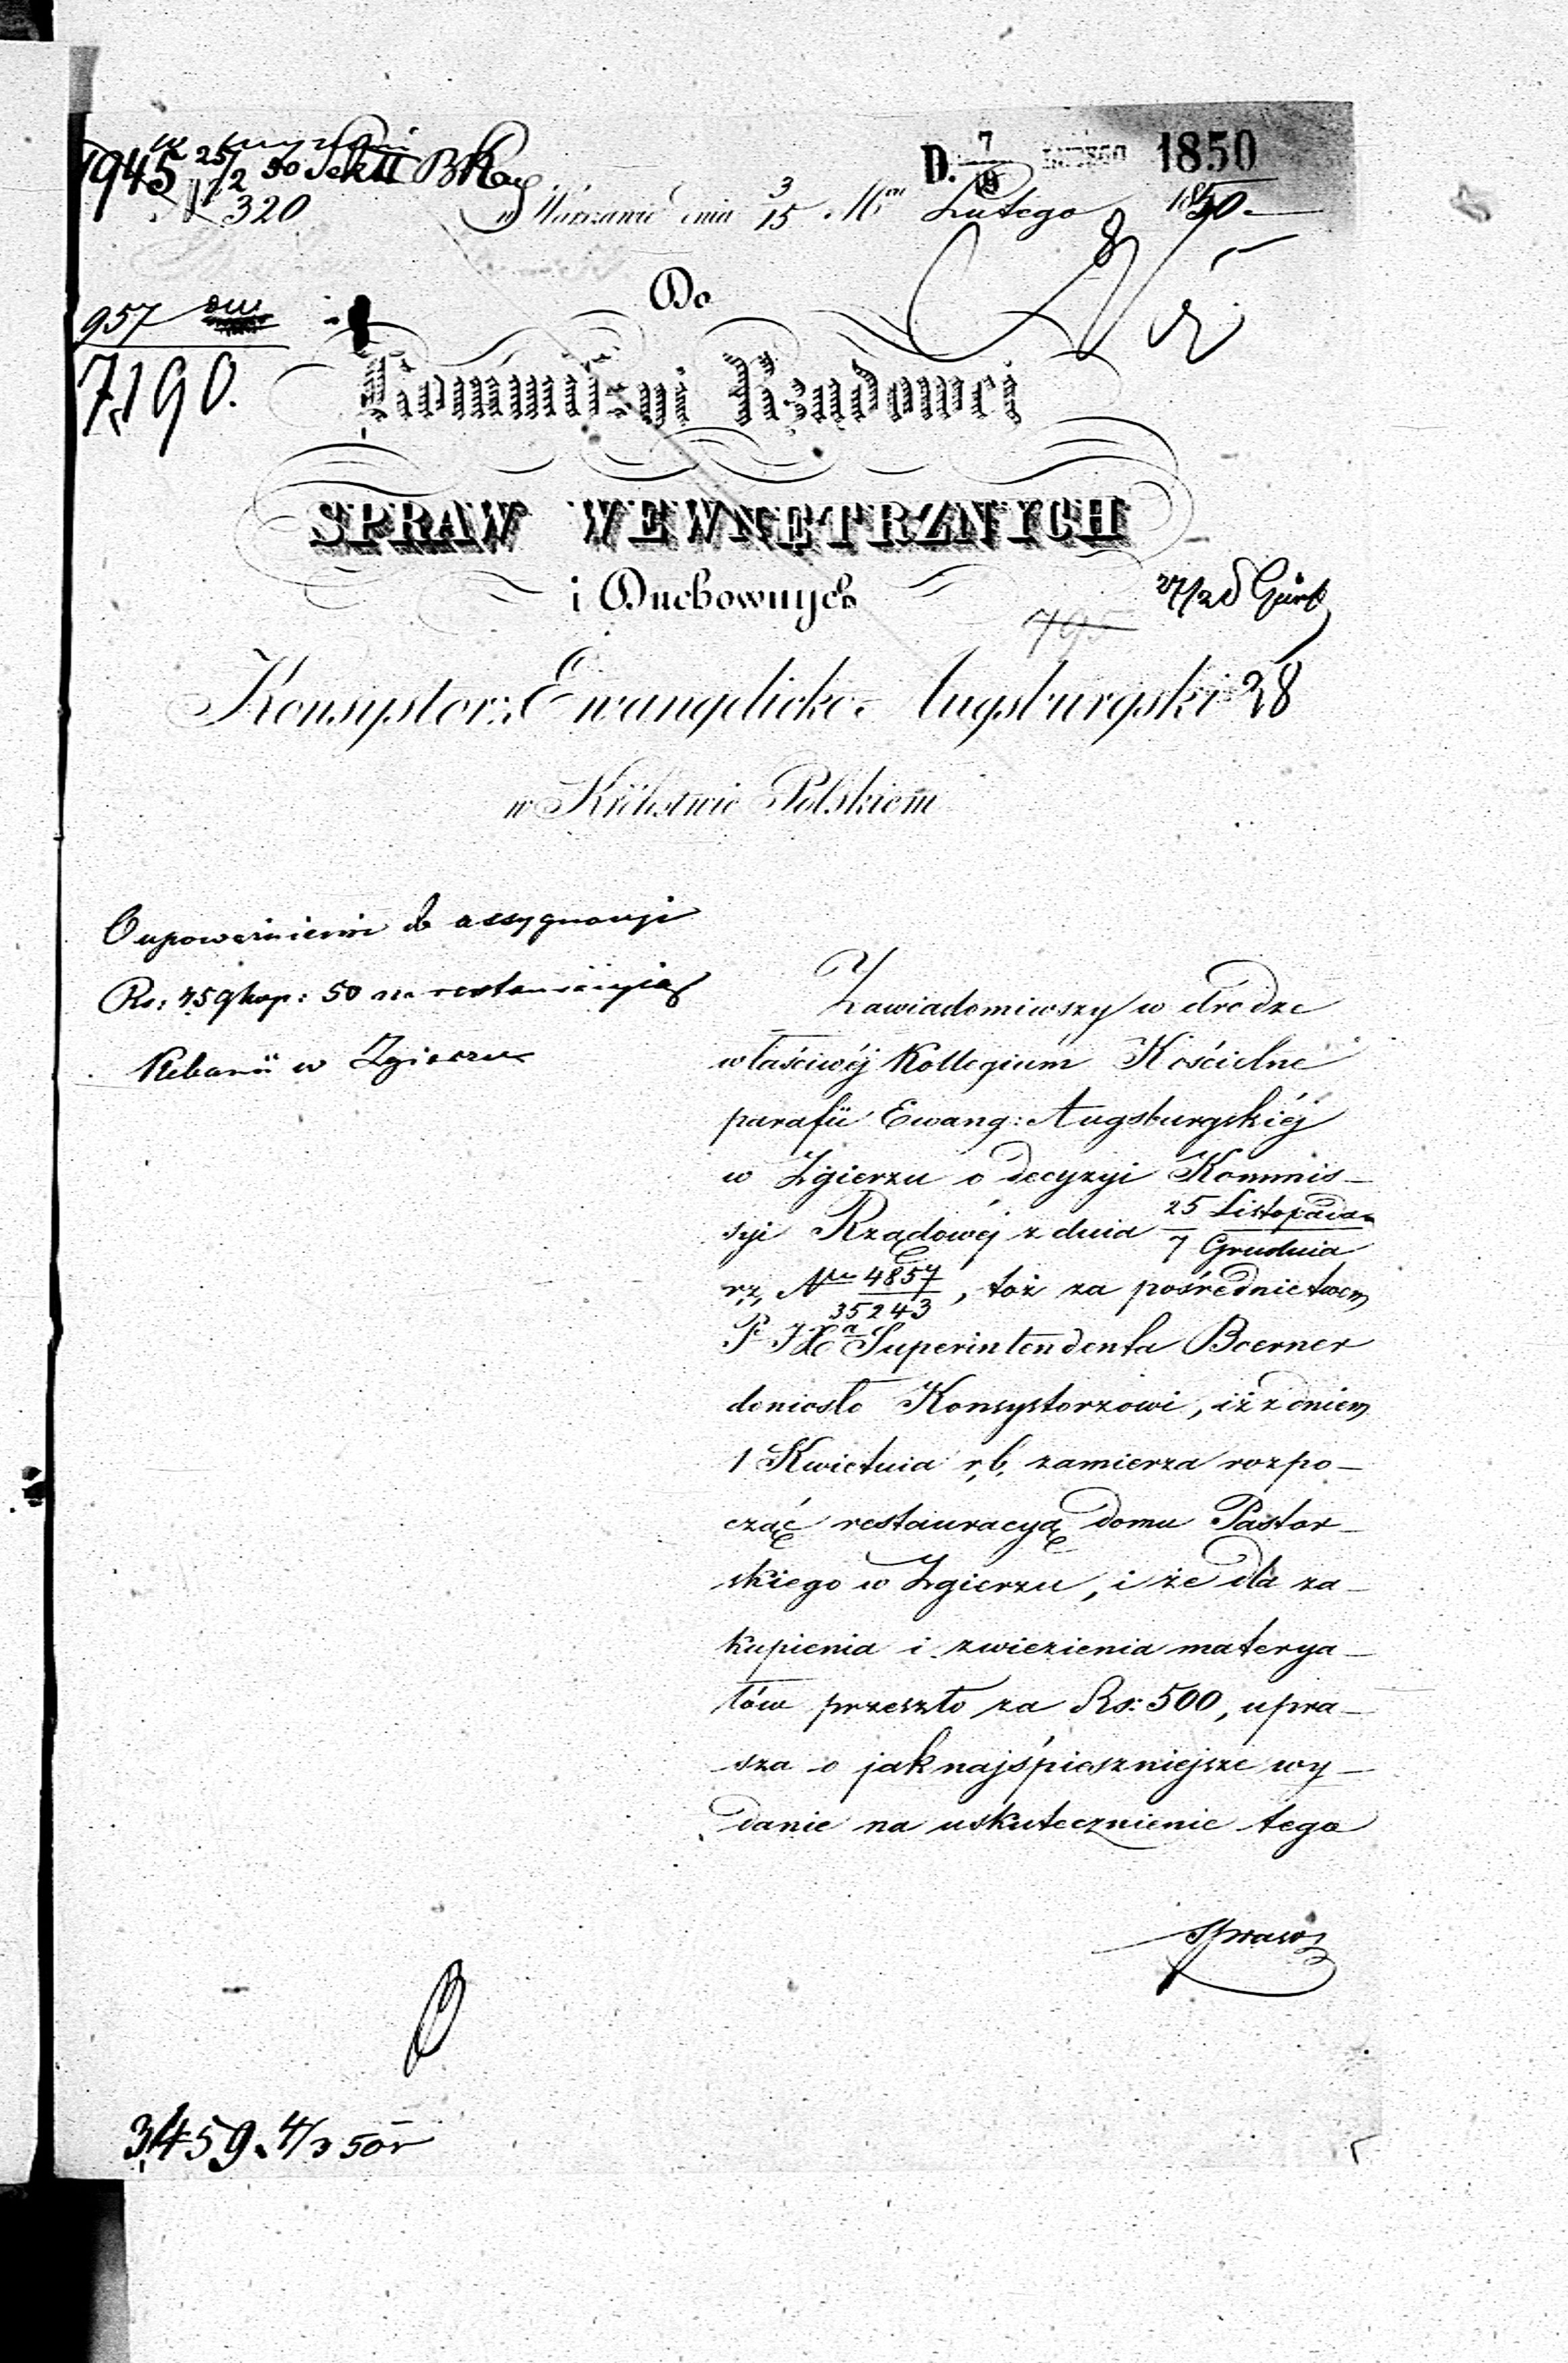 1945 25/2 50 Sek II
320
D. 7/19 LUTEGO 1850
w Warszawie dnia 3/15 Lutego 1850.
957
7190.
Do
Kommissyi Rządowej
SPRAW WEWNĘTRZNYCH
i Duchownych
795
Konsystorz Ewangelicko-Augsburgski
28
w Królestwie Polskiem
O upoważnienie do assygnacyi
Rs: 759 kop: 50 na restauracyią
Plebanii w Zgierzu
Zawiadomiwszy w drodze
właściwéj Kollegium Kościelne
parafii Ewang: Augsburgskiéj
w Zgierzu o decyzyi Kommis-
syi Rządowéj z dnia 25 Listopada / 7 Grudnia
r.z. Nro 4857/35243, toż za pośrednictwem
Superintendenta Boerner
doniosło Konsystorzowi, iż z dniem
1 Kwietnia r.b. zamierza rozpo-
cząć restauracyą domu Pastor-
skiego w Zgierzu, i że dla za-
kupienia i zwiezienia materya-
łów przeszło za Rs: 500, upra-
sza o jak najśpieszniejsze wy-
danie na uskutecznienie tego
3459. 4/3 50 r